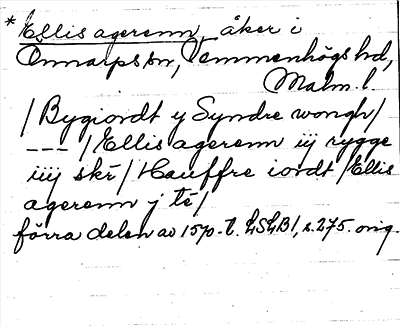 * Ellis agerenn, åker i
Önnarps sn, Vemmenhögs hd,
Malm. l.
/Bygiordt y Syndre wongh/
--- /Ellis agerenn iij rygge
iiij skr̄/ Hauffre iordt /Ellis
agerenn j tē/
förra delen av 1570-t. LSLB1, s. 275. orig.